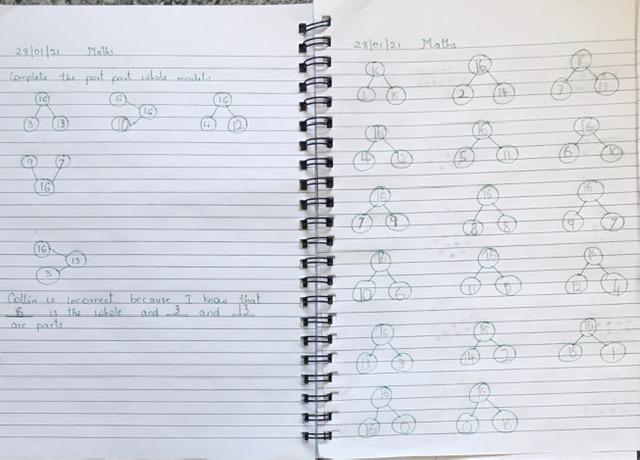 28/01/21 Maths
Complete the part part whole models
16 6 16
3 13 10 16 4 12
9 7
16
16 13
3
Collin is incorrect because I know that
16 is the whole and 3 and 13
are parts.
28/01/21 Maths
16 16
2 14 3 13
16 16 16
4 12 5 11 6 10
16 16 16
7 9 8 8 9 7
16 16 16
10 6 11 12 4
16 16 16
13 3 14 2 15 1
16 16
16 0 0 16